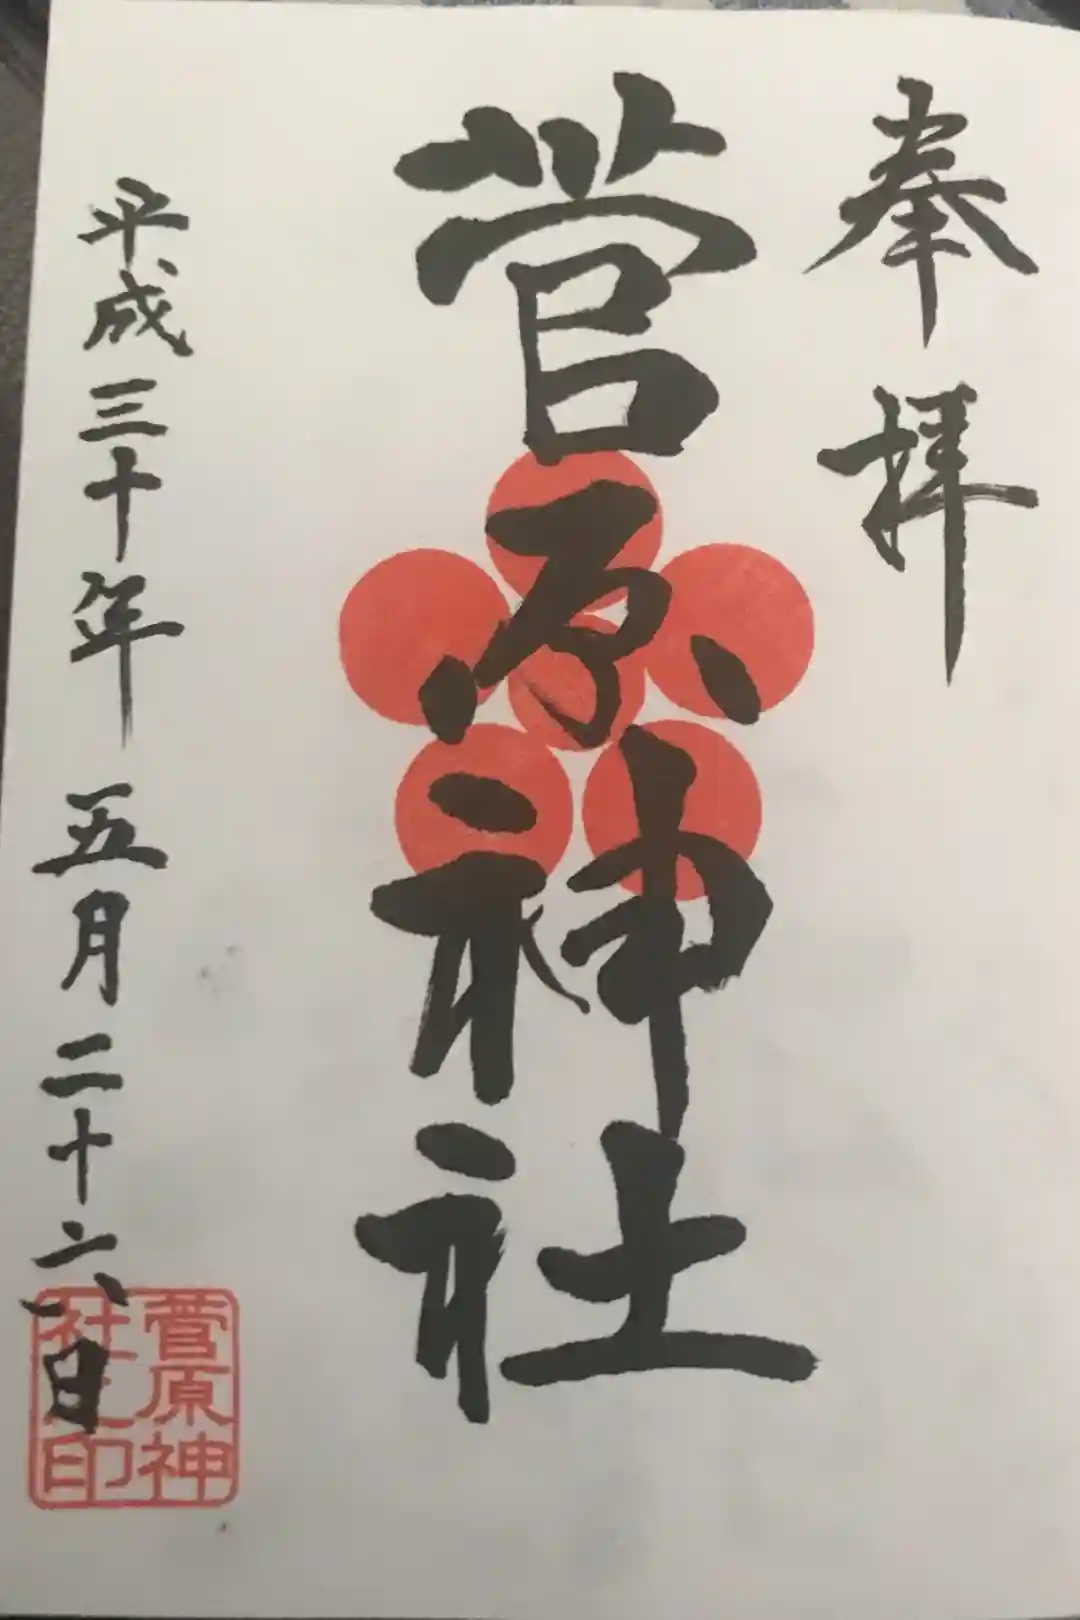 奉拝
菅原神社
平成三十年 五月二十六日
菅原神
社之印